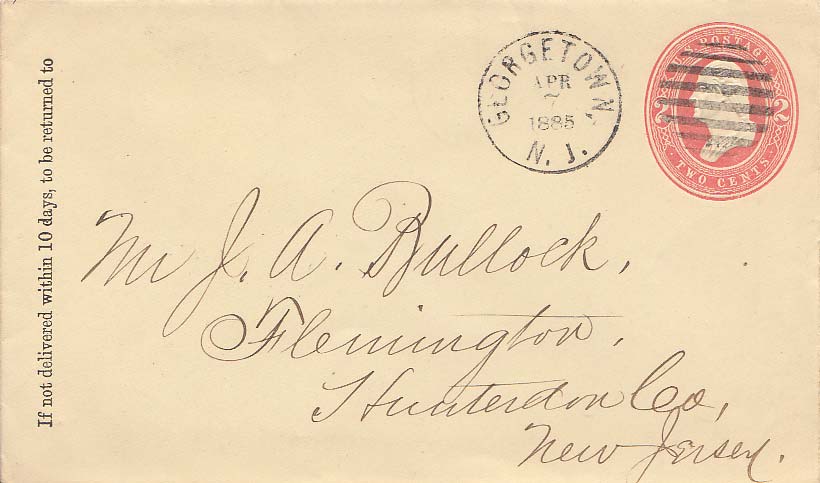 If not delivered within 10 days, to be returned to
GEORGETOWN,
APR
7
1885
N. J.
U.S. POSTAGE
2 2
TWO CENTS
Mr J. A. Bullock,
Flemington,
Hunterdon Co,
New Jersey.